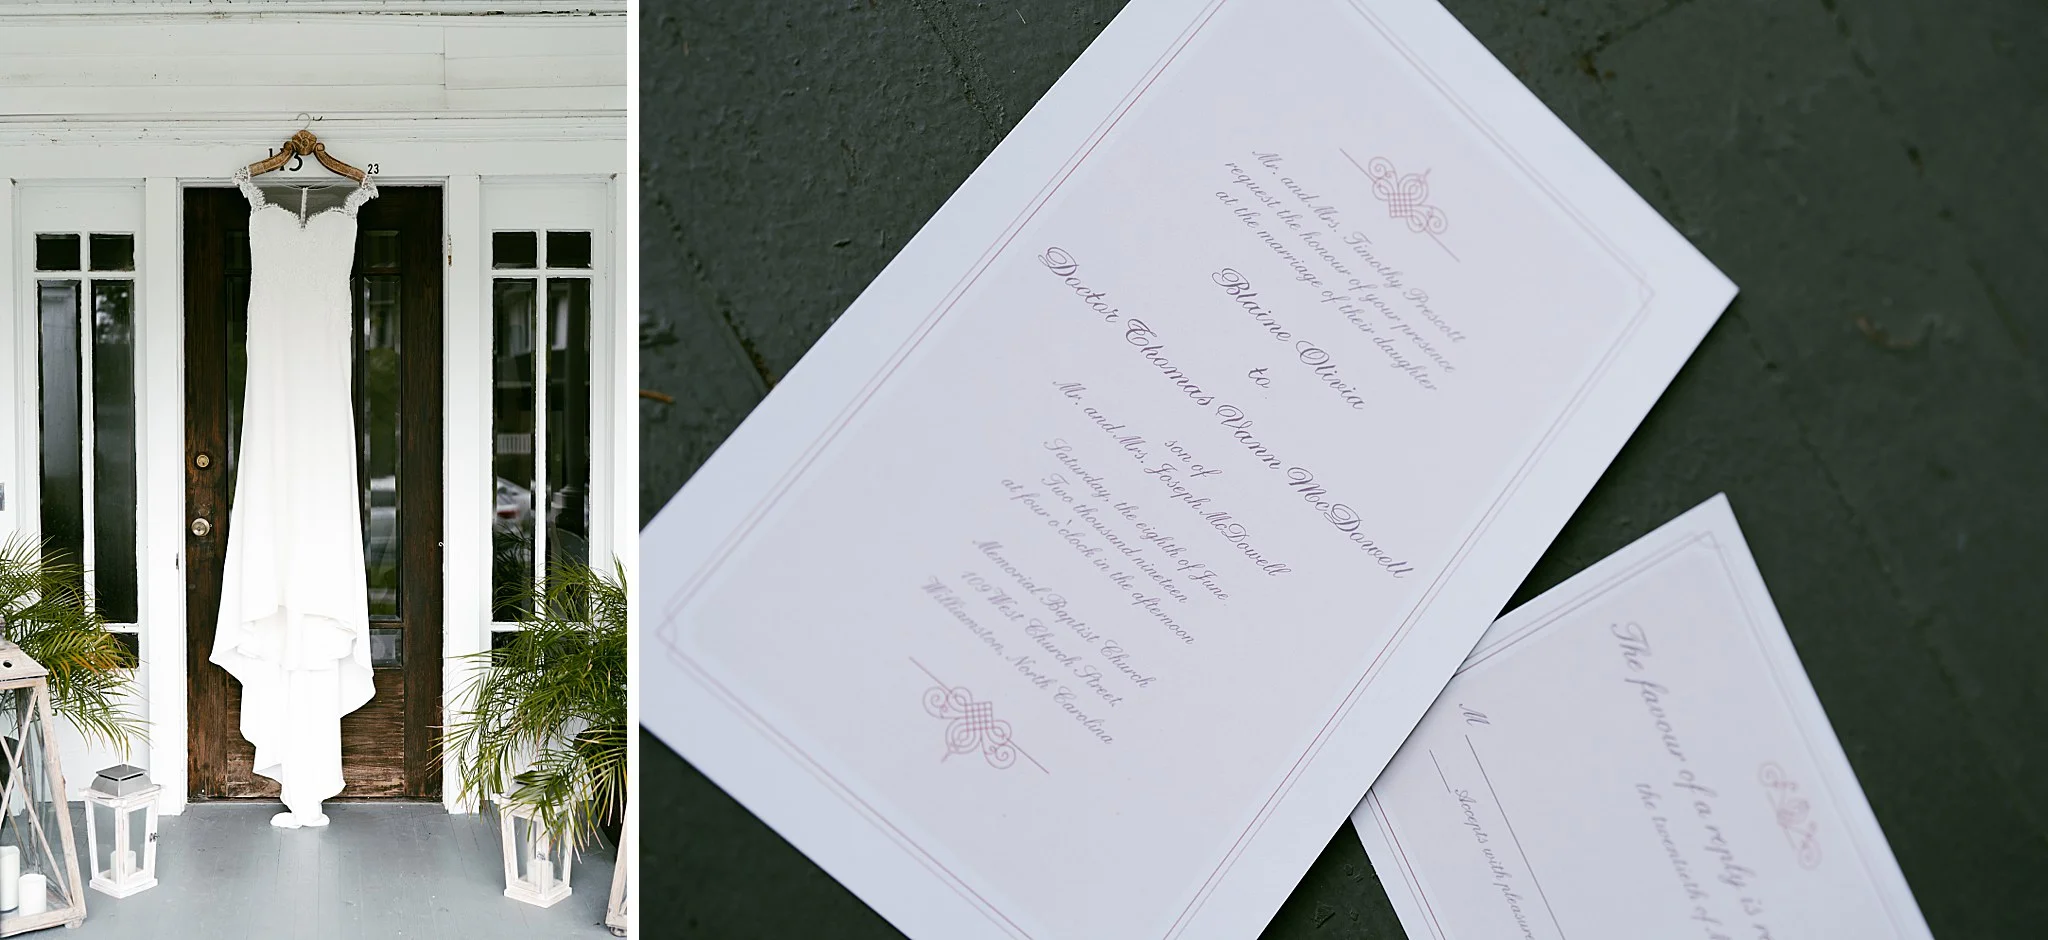 23
Mr. and Mrs. Timothy Prescott
request the honour of your presence
at the marriage of their daughter
Blaine Olivia
to
Doctor Thomas Vann McDowell
son of
Mr. and Mrs. Joseph McDowell
Saturday, the eighth of June
Two thousand nineteen
at four o'clock in the afternoon
Memorial Baptist Church
109 West Church Street
Williamston, North Carolina
The favour of a reply is
the twentieth of
M
Accepts with pleasure